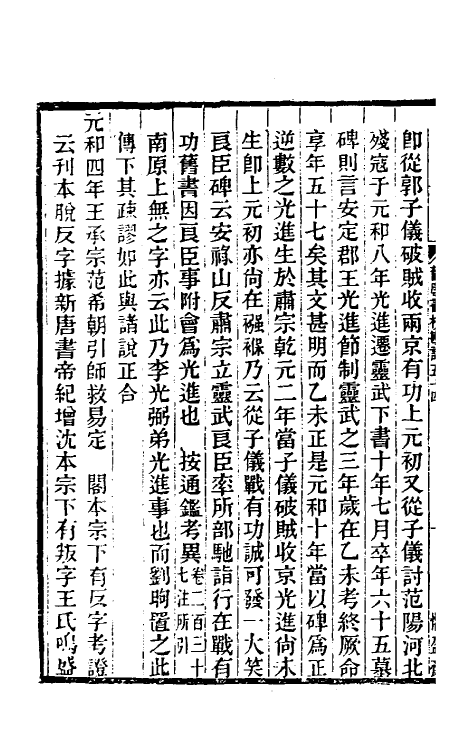 卽從郭子儀破賊收兩京有功上元初又從子儀討范陽河北
殘寇于元和八年光進遷靈武下書十年七月卒年六十五墓
碑則言安定郡王光進節制靈武之三年歲在乙未考終厥命
享年五十七矣其文甚明而乙未正是元和十年當以碑爲正
逆數之光進生於肅宗乾元二年當子儀破賊收京光進尙未
生卽上元初亦尙在襁褓乃云從子儀戰有功誠可發一大笑
良臣碑云安祿山反肅宗立靈武良臣率所部馳詣行在戰有
功舊書因良臣事附會爲光進也　按通鑑考異卷二百三十七注所引
南原上無之字亦云此乃李光弼弟光進事也而劉昫置之此
傳下其疎謬如此與諸說正合
元和四年王承宗范希朝引師救易定　閣本宗下有反字考證
云刊本脫反字據新唐書帝紀增沈本宗下有叛字王氏鳴盛